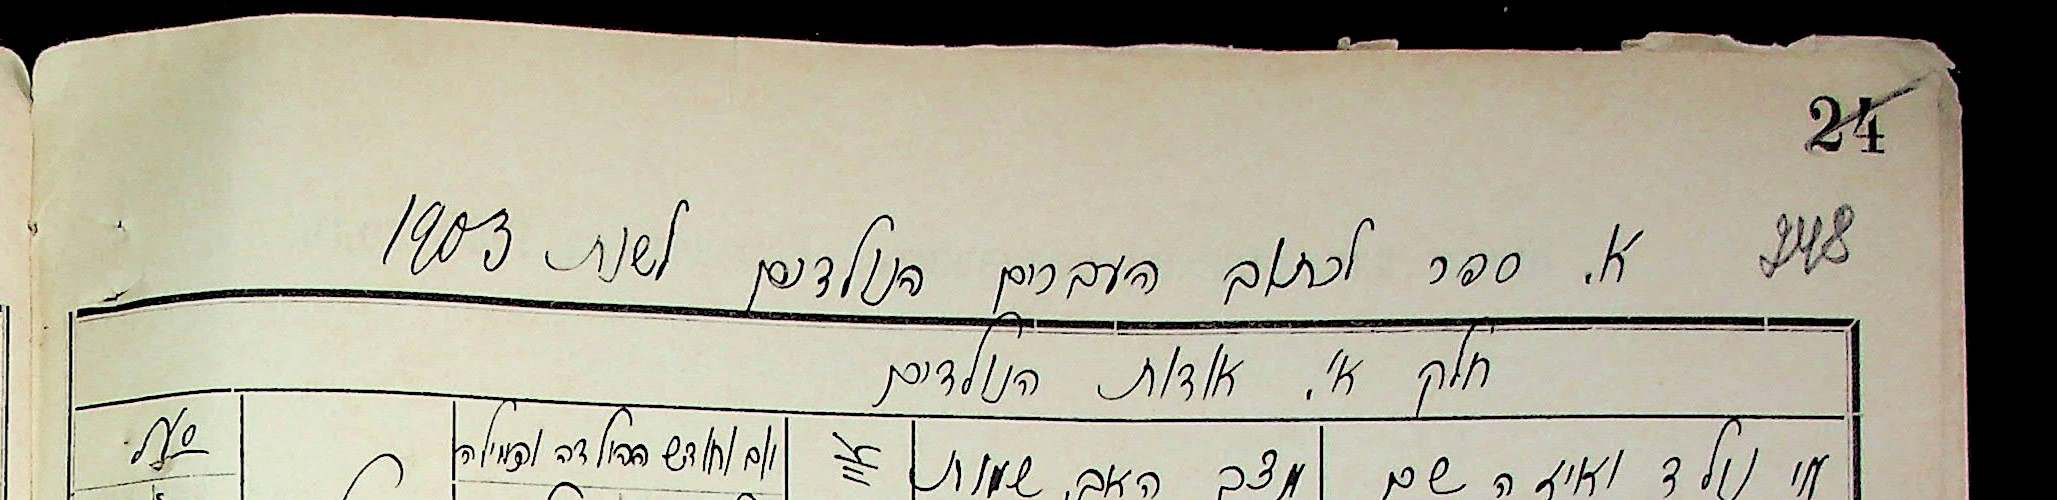 24
248
א. ספר לכתאב העברים הנולדים לשנת 1903
חלק א'. אודות הנולדים
מי נולד ואיזה שם
מצב האב, שמות
יום וחודש הלידה והמילה